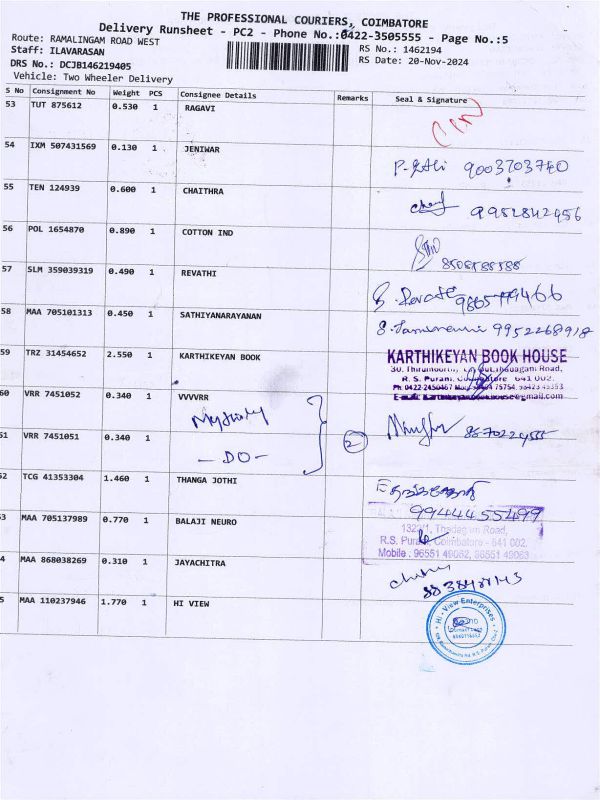 THE PROFESSIONAL COURIERS, COIMBATORE
Delivery Runsheet - PC2 - Phone No.:0422-3505555 - Page No.:5
Route: RAMALINGAM ROAD WEST
RS No.: 1462194
Staff: ILAVARASAN
RS Date: 20-Nov-2024
DRS No.: DCJB146219405
Vehicle: Two Wheeler Delivery
S No Consignment No Weight PCS Consignee Details Remarks Seal & Signature
53 TUT 875612 0.530 1 RAGAVI
54 IXM 507431569 0.130 1 JENIWAR
9003703740
55 TEN 124939 0.600 1 CHAITHRA
9952842456
56 POL 1654870 0.890 1 COTTON IND
57 SLM 359039319 0.490 1 REVATHI
58 MAA 705101313 0.450 1 SATHIYANARAYANAN
9952268918
59 TRZ 31454652 2.550 1 KARTHIKEYAN BOOK
KARTHIKEYAN BOOK HOUSE
R. S. Puram, Coimbatore - 641 002.
60 VRR 7451052 0.340 1 VVVVRR
2
61 VRR 7451051 0.340 1
- DO -
62 TCG 41353304 1.460 1 THANGA JOTHI
9944455499
63 MAA 705137989 0.770 1 BALAJI NEURO
Road,
R.S. Puram, Coimbatore - 641 002.
Mobile : 96551 49062, 96551 49063
64 MAA 868038269 0.310 1 JAYACHITRA
65 MAA 110237946 1.770 1 HI VIEW
Hi - View Enterprises